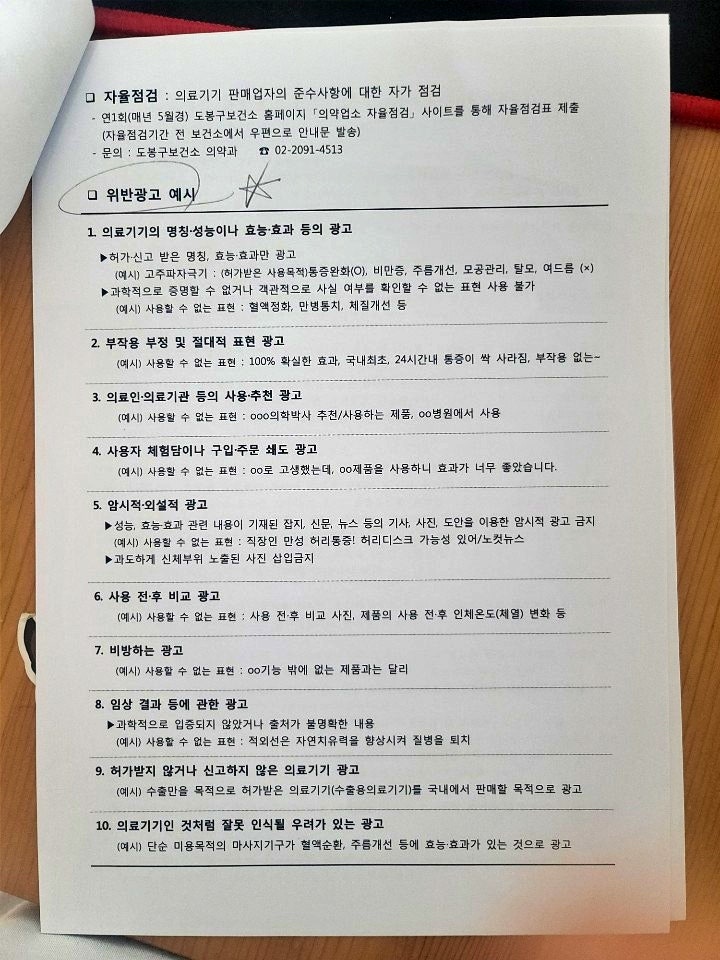 ❑ 자율점검 : 의료기기 판매업자의 준수사항에 대한 자가 점검
- 연1회(매년 5월경) 도봉구보건소 홈페이지 「의약업소 자율점검」 사이트를 통해 자율점검표 제출
(자율점검기간 전 보건소에서 우편으로 안내문 발송)
- 문의 : 도봉구보건소 의약과 ☎ 02-2091-4513
❑ 위반광고 예시
1. 의료기기의 명칭·성능이나 효능·효과 등의 광고
▶허가·신고 받은 명칭, 효능·효과만 광고
(예시) 고주파자극기 : (허가받은 사용목적)통증완화(O), 비만증, 주름개선, 모공관리, 탈모, 여드름 (×)
▶과학적으로 증명할 수 없거나 객관적으로 사실 여부를 확인할 수 없는 표현 사용 불가
(예시) 사용할 수 없는 표현 : 혈액정화, 만병통치, 체질개선 등
2. 부작용 부정 및 절대적 표현 광고
(예시) 사용할 수 없는 표현 : 100% 확실한 효과, 국내최초, 24시간내 통증이 싹 사라짐, 부작용 없는~
3. 의료인·의료기관 등의 사용·추천 광고
(예시) 사용할 수 없는 표현 : ooo의학박사 추천/사용하는 제품, oo병원에서 사용
4. 사용자 체험담이나 구입·주문 쇄도 광고
(예시) 사용할 수 없는 표현 : oo로 고생했는데, oo제품을 사용하니 효과가 너무 좋았습니다.
5. 암시적·외설적 광고
▶성능, 효능·효과 관련 내용이 기재된 잡지, 신문, 뉴스 등의 기사, 사진, 도안을 이용한 암시적 광고 금지
(예시) 사용할 수 없는 표현 : 직장인 만성 허리통증! 허리디스크 가능성 있어/노컷뉴스
▶과도하게 신체부위 노출된 사진 삽입금지
6. 사용 전·후 비교 광고
(예시) 사용할 수 없는 표현 : 사용 전·후 비교 사진, 제품의 사용 전·후 인체온도(체열) 변화 등
7. 비방하는 광고
(예시) 사용할 수 없는 표현 : oo기능 밖에 없는 제품과는 달리
8. 임상 결과 등에 관한 광고
▶과학적으로 입증되지 않았거나 출처가 불명확한 내용
(예시) 사용할 수 없는 표현 : 적외선은 자연치유력을 향상시켜 질병을 퇴치
9. 허가받지 않거나 신고하지 않은 의료기기 광고
(예시) 수출만을 목적으로 허가받은 의료기기(수출용의료기기)를 국내에서 판매할 목적으로 광고
10. 의료기기인 것처럼 잘못 인식될 우려가 있는 광고
(예시) 단순 미용목적의 마사지기구가 혈액순환, 주름개선 등에 효능·효과가 있는 것으로 광고